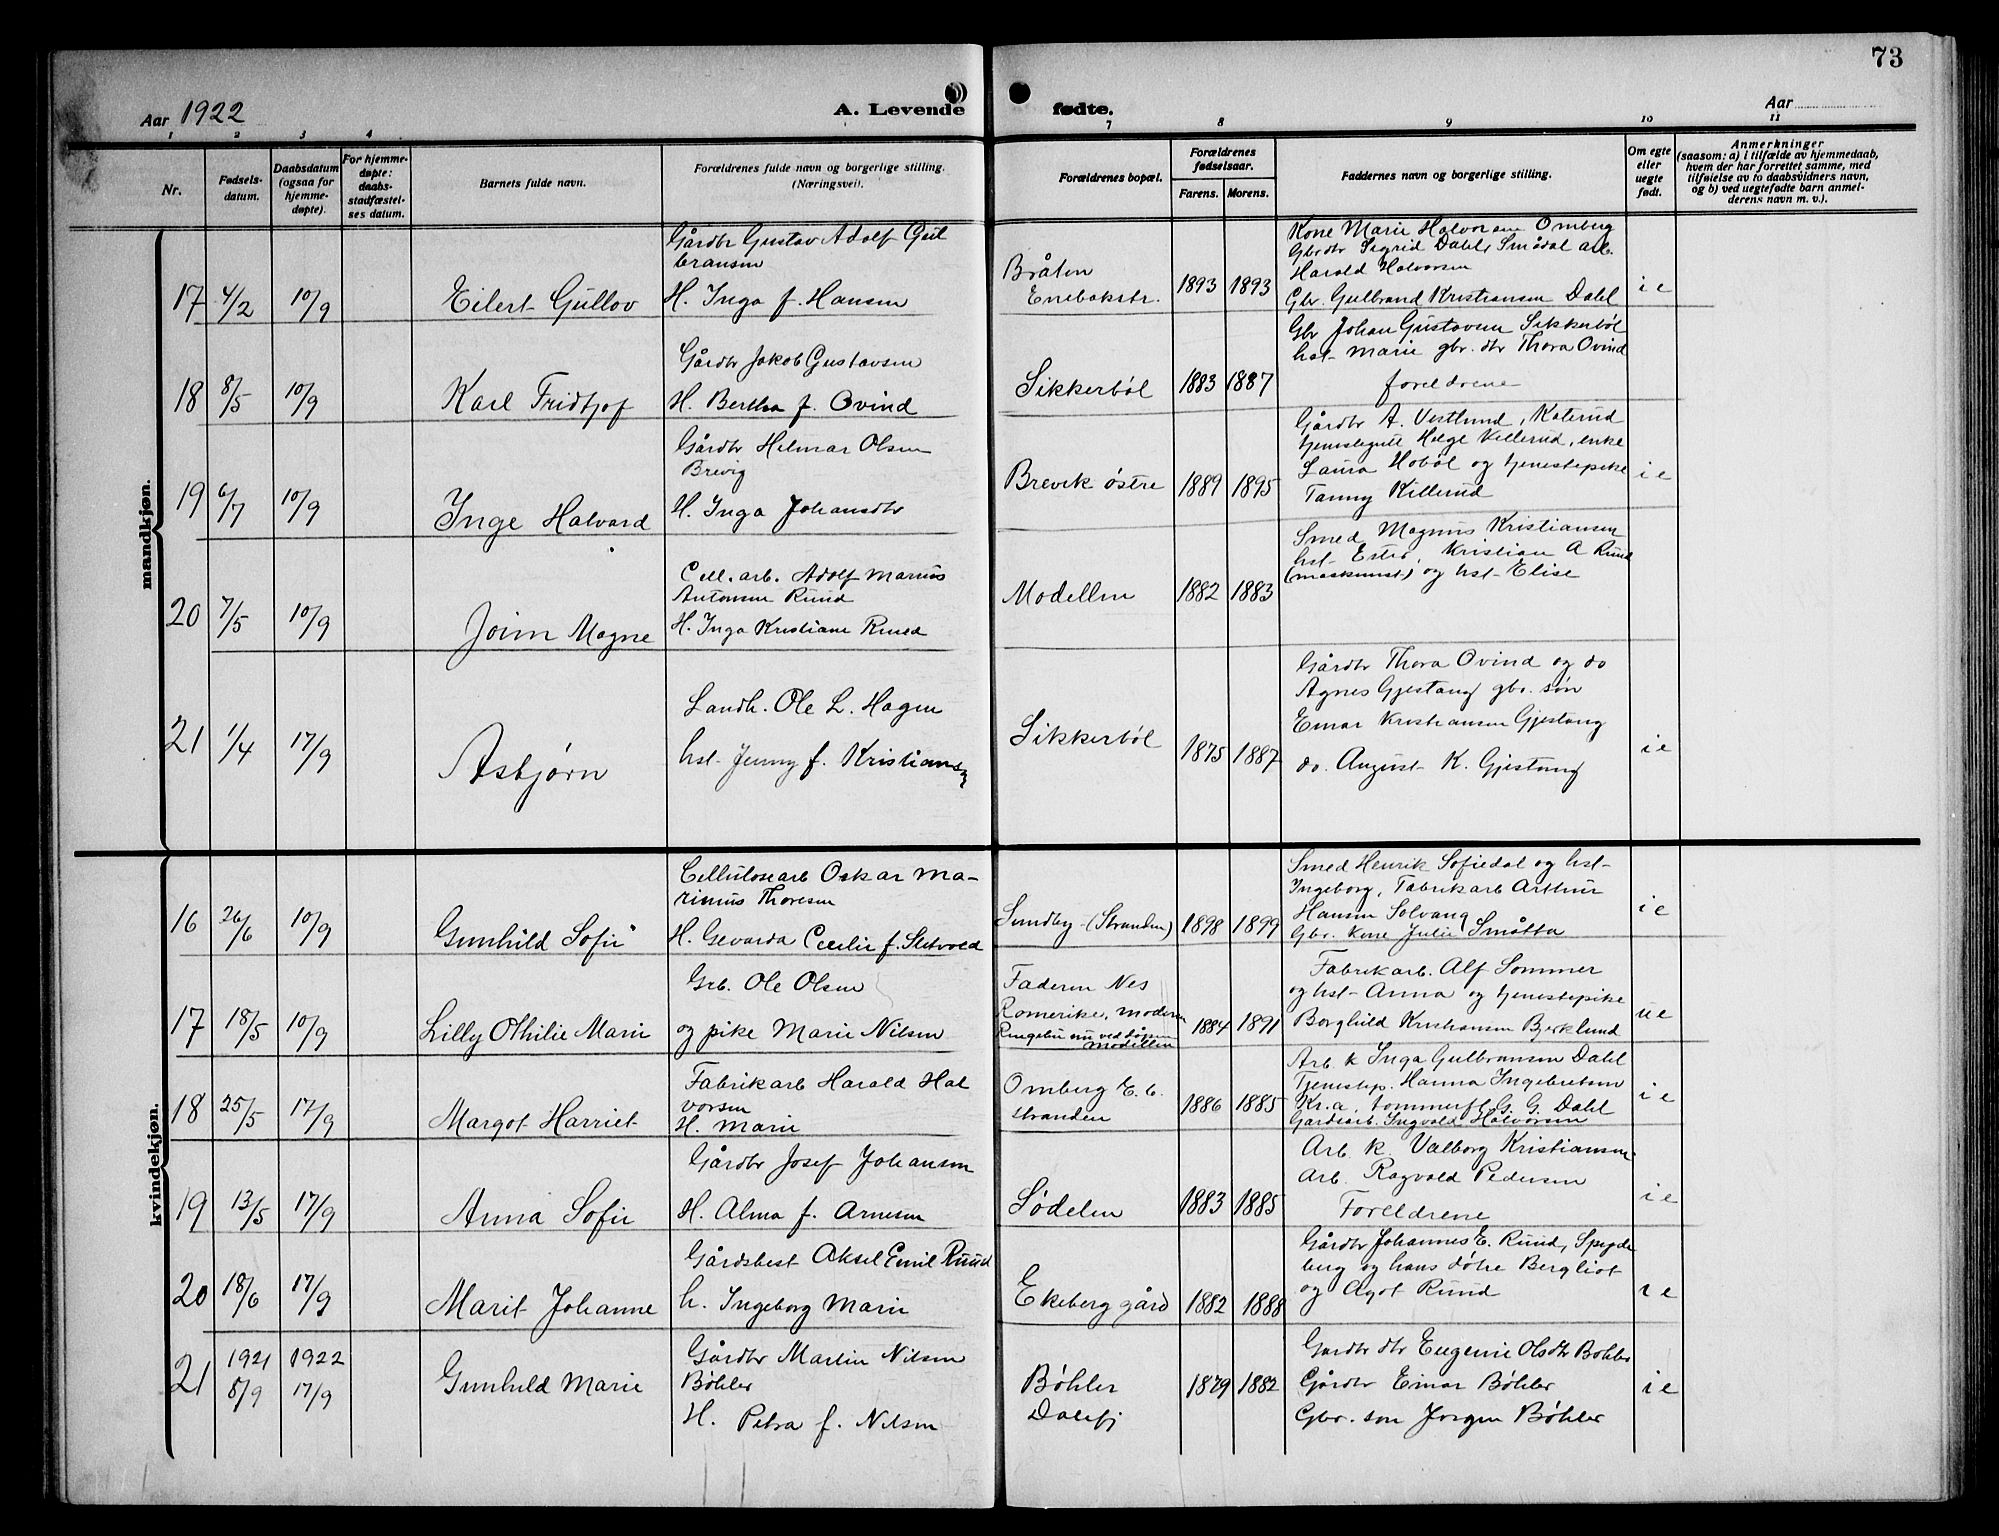 73
Aar 1922
A. Levende fødte.
Aar
1 2 3 4 7 8 9 10 11
Nr.
Fødsels-
datum.
Daabsdatum
(ogsaa for
hjemme-
døpte).
For hjemme-
døpte:
daabs-
stadfæstel-
ses datum.
Barnets fulde navn.
Forældrenes fulde navn og borgerlige stilling.
(Næringsvei).
Forældrenes bopæl.
Forældrenes
fødselsaar.
Farens. Morens.
Faddernes navn og borgerlige stilling.
Om egte
eller
uegte
født.
Anmerkninger
(saasom: a) i tilfælde av hjemmedaab,
hvem der har forrettet samme, med
tilføielse av to daabsvidners navn,
og b) ved uegtefødte barn anmel-
derens navn m. v.).
mandkjøn.
17 4/2 10/9 Eilert Gullov
Gårdbr Gustav Adolf Gul
bransen
H. Inga f. Hansen
Bråten
Enebakstr.
1893 1893
Kone Marie Halvorsen Omberg
Gbrdtr Sigrid Dahl, Smådal arb.
Harald Halvorsen
Gbr. Gulbrand Kristiansen Dahl
i e
18 8/5 10/9 Karl Fridtjof
Gårdbr Jakob Gustavsen
H. Bertha f. Ovind
Sikkerbøl
1883 1887
Gbr Johan Gustavsen Sikkerbøl
hst- Marie gbr. dtr Thora Ovind
foreldrene
19 6/7 10/9 Inge Halvard
Gårdbr Helmar Olsen
Brevig
H. Inga Johansdtr
Brevik østre
1889 1895
Gårdbr A. Vestlund, Katerud
tjenestegutt Helge Killerud, enke
Laura Hobøl og tjenestepike
Fanny Killerud
i e
20 7/5 10/9 Magne
Cell. arb. Adolf Marius
Antonsen Ruud
H. Inga Kristiane Ruud
Modellen
1882 1883
Smed Magnus Kristiansen
hst- Ester, Kristian A Ruud
(maskinist) og hst- Elise
21 1/4 17/9 Asbjørn
Landh. Ole L. Hagen
hst- Jenny f. Kristiansen
Sikkerbøl
1875 1887
Gårdbr Thora Ovind og do
Agnes Gjestang gbr. søn
Einar Kristiansen Gjestang
do. August K. Gjestang
i e
kvindekjøn.
16 26/6 10/9 Gunhild Sofie
Cellulosearb Oskar Ma-
rinius Thoresen
H. Gevarda Cecilie f. Sletvold
Sundby (Stranden)
1898 1899
Smed Henrik Sofiedal og hst-
Ingeborg, Fabrikarb Arthur
Hansen Solvang
Gbr. kone Julie Småtta
i e
17 18/5 10/9 Lilly Othilie Marie
Grb. Ole Olsen
og pike Marie Nilsen
Faderen Nes
Romerike, moderen
Ringebu nu ved døpen
Modellen
1884 1891
Fabrikarb. Alf Sommer
og hst- Anna og tjenestepike
Borghild Kristiansen Bjerklund
u e
18 25/5 17/9 Margot Harriet
Fabrikarb Harald Hal
vorsen
H. Marie
Omberg E. b.
stranden
1886 1885
Arb. k Inga Gulbransen Dahl
Tjenestep. Hanna Ingebretsen
Kr.a, tommerfl. G. G. Dahl
Gardsarb. Ingvald Halvorsen
i e
19 13/5 17/9 Anna Sofie
Gårdbr Josef Johansen
H. Alma f. Arnesen
Sødelen
1883 1885
Arb. k. Valborg Kristiansen
Arb. Ragvald Pedersen
Foreldrene
i e
20 18/6 17/9 Marit Johanne
Gårdsbest Aksel Emil Ruud
h. Ingeborg Marie
Ekeberg gård
1882 1888
Gårdbr Johannes E. Ruud, Spyde
berg og hans døtre Bergliot
og Agot Ruud
i e
21 1921 8/9 1922 17/9 Gunhild Marie
Gårdbr Martin Nilsen
Bøhler
H. Petra f. Nilsen
Bøhler
Dalefj
1879 1882
Gardbr dtr Eugenie Olsdtr Bøhler
Gårdbr Einar Bøhler
Gbr. søn Jørgen Bøhler
i e